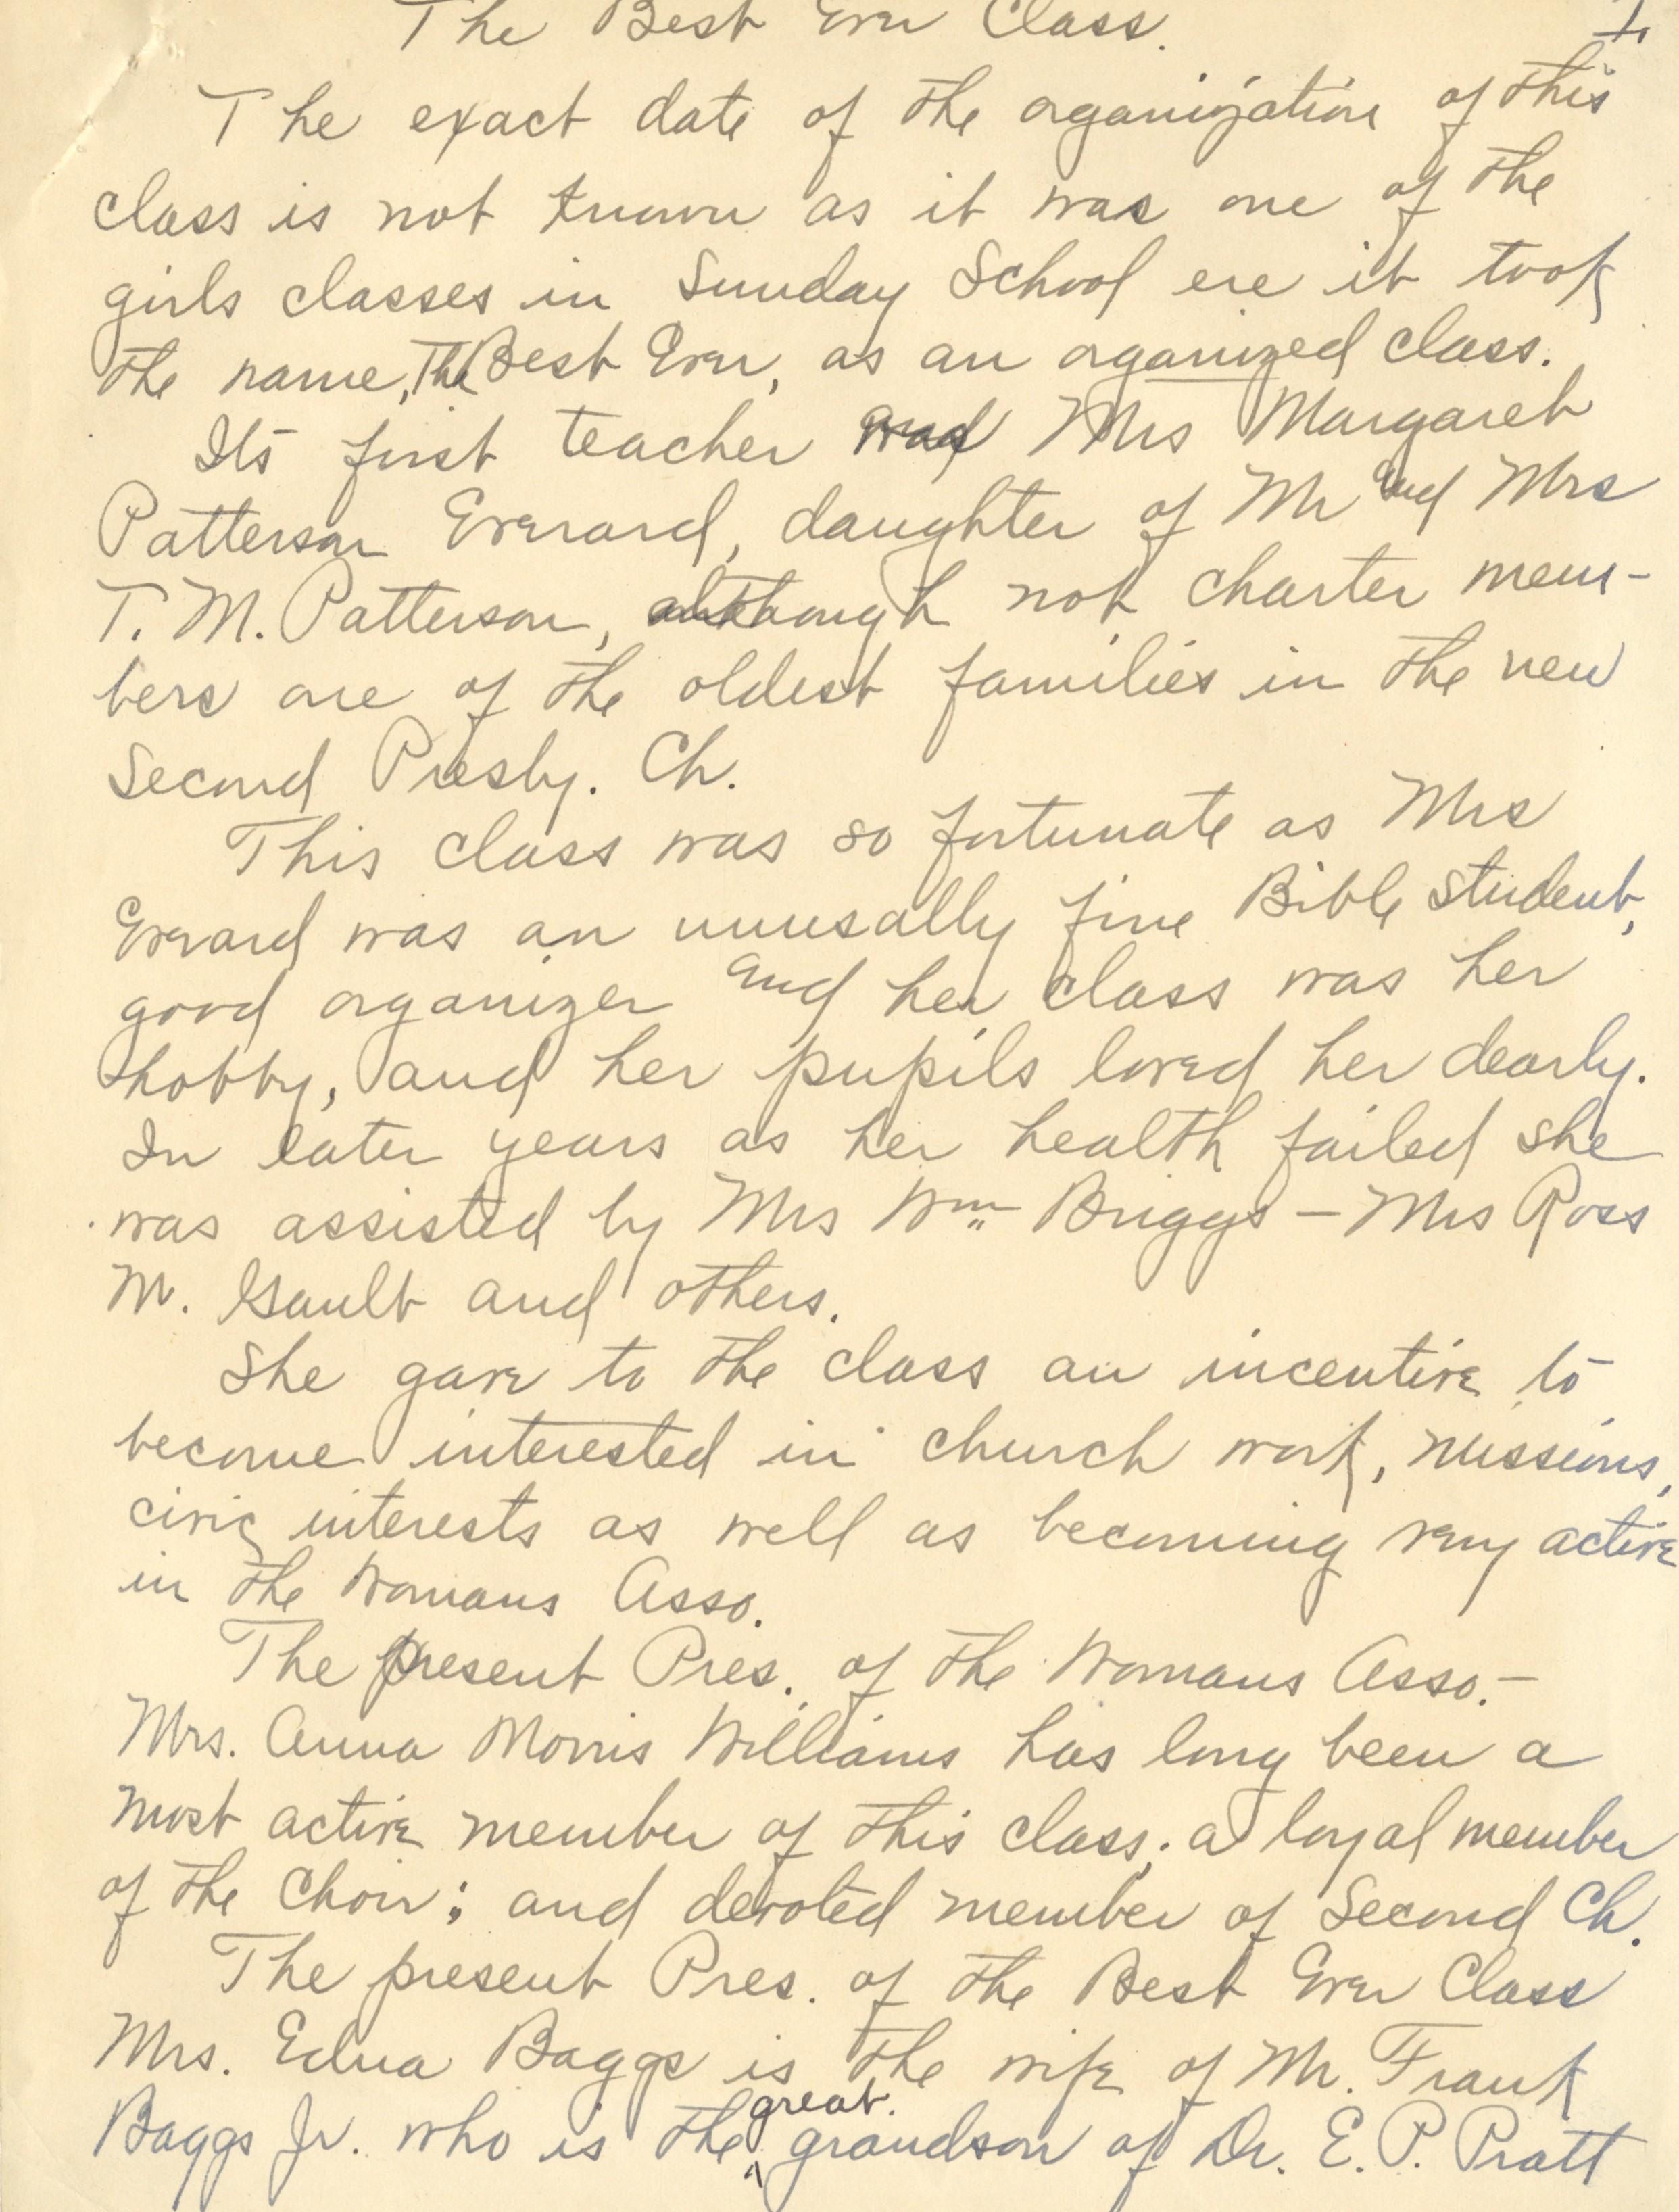 The Best Ever Class. 1.
The exact date of the organization of this
class is not known as it was one of the
girls classes in Sunday School ere it took
the name, The Best Ever, as an organized class.
Its first teacher was Mrs Margaret
Patterson Everard, daughter of Mr and Mrs
T. M. Patterson, although not charter mem-
bers are of the oldest families in the new
Second Presby. Ch.
This class was so fortunate as Mrs
Everard was an unusally fine Bible student,
good organizer and her class was her
hobby, and her pupils loved her dearly.
In later years as her health failed she
was assisted by Mrs Wm Briggs - Mrs Ross
M. Gault and others.
She gave to the class an incentive to
become interested in church work, missions,
civic interests as well as becoming very active
in the Womans Asso.
The present Pres. of the Womans Asso. -
Mrs. Anna Morris Williams has long been a
most active member of this class; a loyal member
of the Choir; and devoted member of Second Ch.
The present Pres. of the Best Ever Class
Mrs. Edna Baggs is the wife of Mr. Frank
Baggs Jr. who is the great grandson of Dr. E. P. Pratt